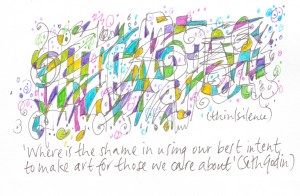 (thinsilence)
'Where is the shame in using our best intent
to make art for those we care about' (Seth Godin)